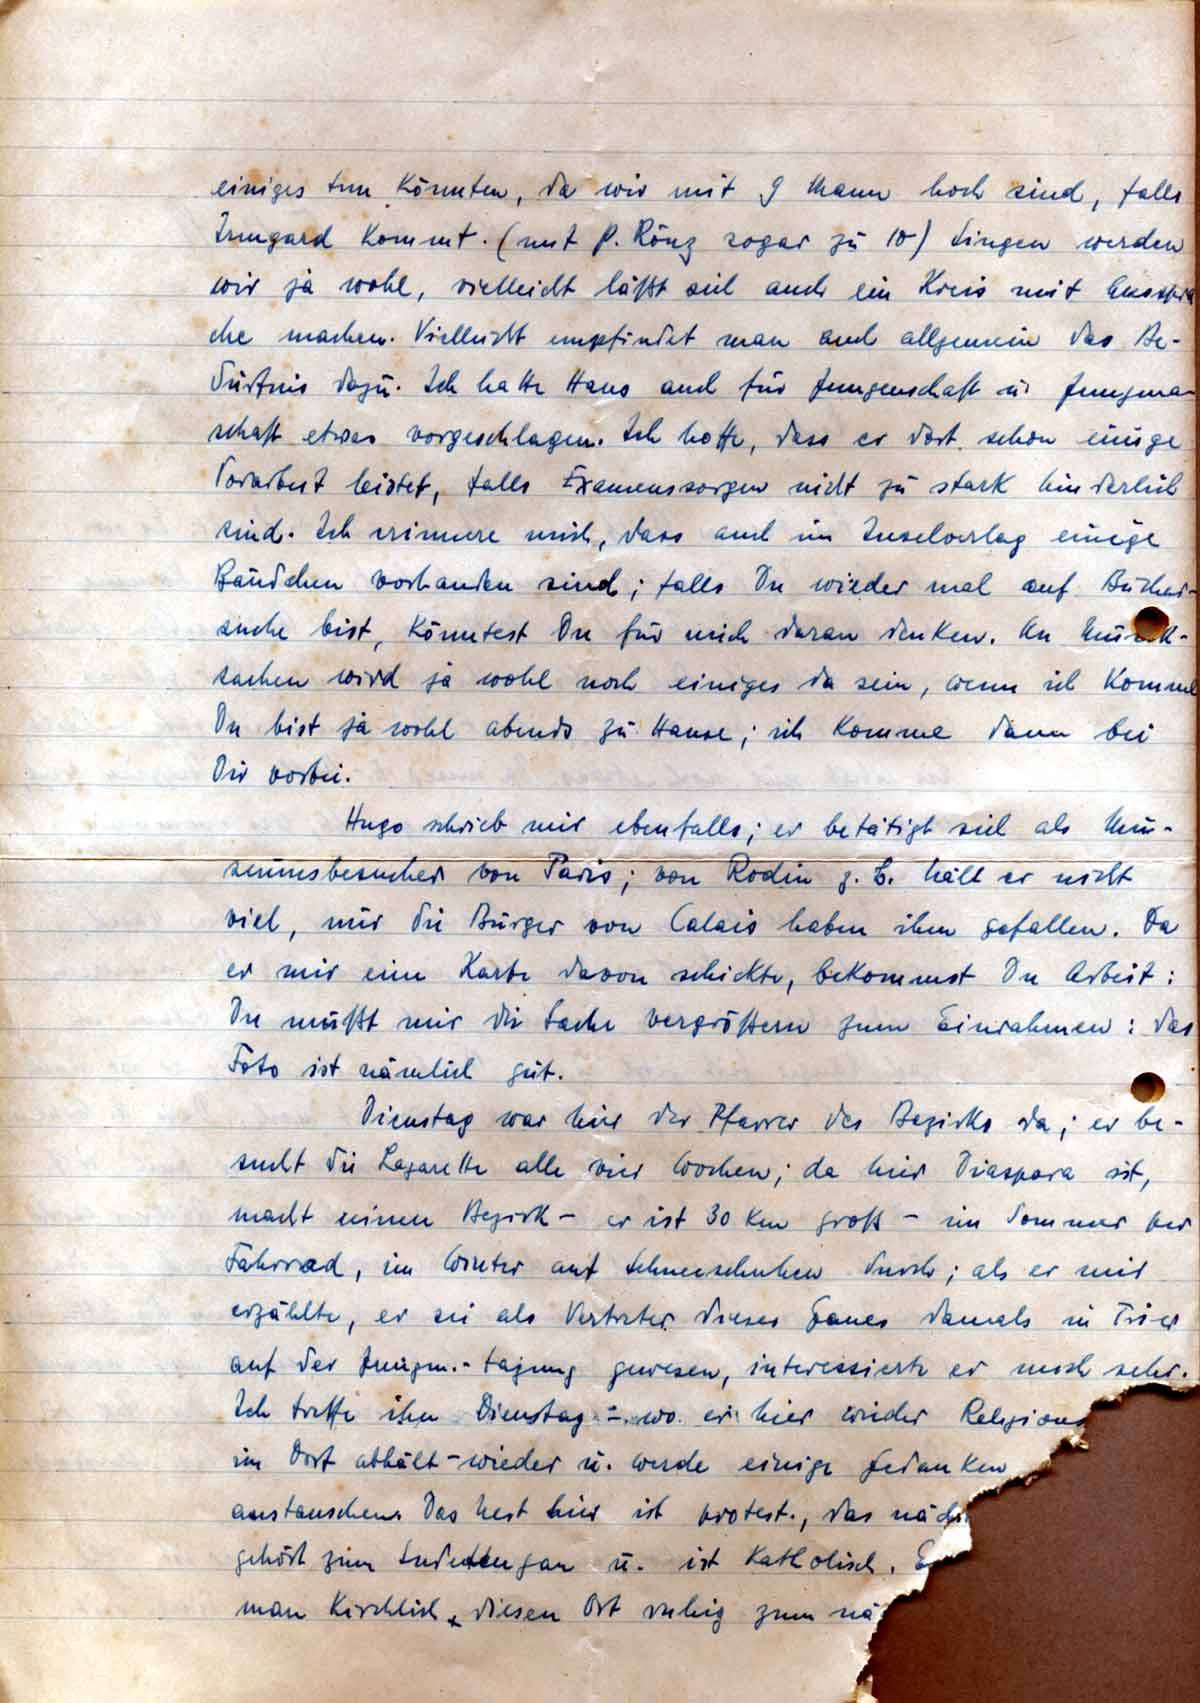 einiges tun könnten, da wir mit 9 Mann hoch sind, falls
Irmgard kommt. (mit P. Rönz sogar zu 10) Singen werden
wir ja wohl, vielleicht läßt sich auch ein Kreis mit Ausspra
che machen. Vielleicht empfindet man auch allgemein das Be-
dürfnis dazu. Ich hatte Hans auch für Jungenschaft u. Jungma-
schaft etwas vorgeschlagen. Ich hoffe, dass er dort schon einige
Vorarbeit leistet, falls Examenssorgen nicht zu stark hinderlich
sind. Ich erinnere mich, dass auch im Inselverlag einige
Bändchen vorhanden sind; falls Du wieder mal auf Bücher-
suche bist, könntest Du für mich daran denken. An Musik-
sachen wird ja wohl noch einiges da sein, wenn ich komme
Du bist ja wohl abends zu Hause; ich komme dann bei
Dir vorbei.
Hugo schrieb mir ebenfalls; er betätigt sich als Mu-
seumsbesucher von Paris; von Rodin z. B. hält er nicht
viel, nur die Bürger von Calais haben ihm gefallen. Da
er mir eine Karte davon schickte, bekommst Du Arbeit:
Du mußt mir die Sache vergrößern zum Einrahmen: das
Foto ist nämlich gut.
Dienstag war hier der Pfarrer des Bezirks da; er be-
sucht die Lazarette alle vier Wochen; da hier Diaspora ist,
macht seinen Bezirk – er ist 30 km groß – im Sommer per
Fahrrad, im Winter auf Schneeschuhen durch; als er mir
erzählte, er sei als Vertreter dieses Gaues damals in Trier
auf der Jungm.-tagung gewesen, interessierte er mich sehr.
Ich treffe ihn Dienstag – wo er hier wieder Religions
im Dorf abhält – wieder u. werde einige Gedanken
austauschen. Das Nest hier ist protest., das näch
gehört zum Sudetengau u. ist katholisch.
man kirchlich diesen Ort ruhig zum nä